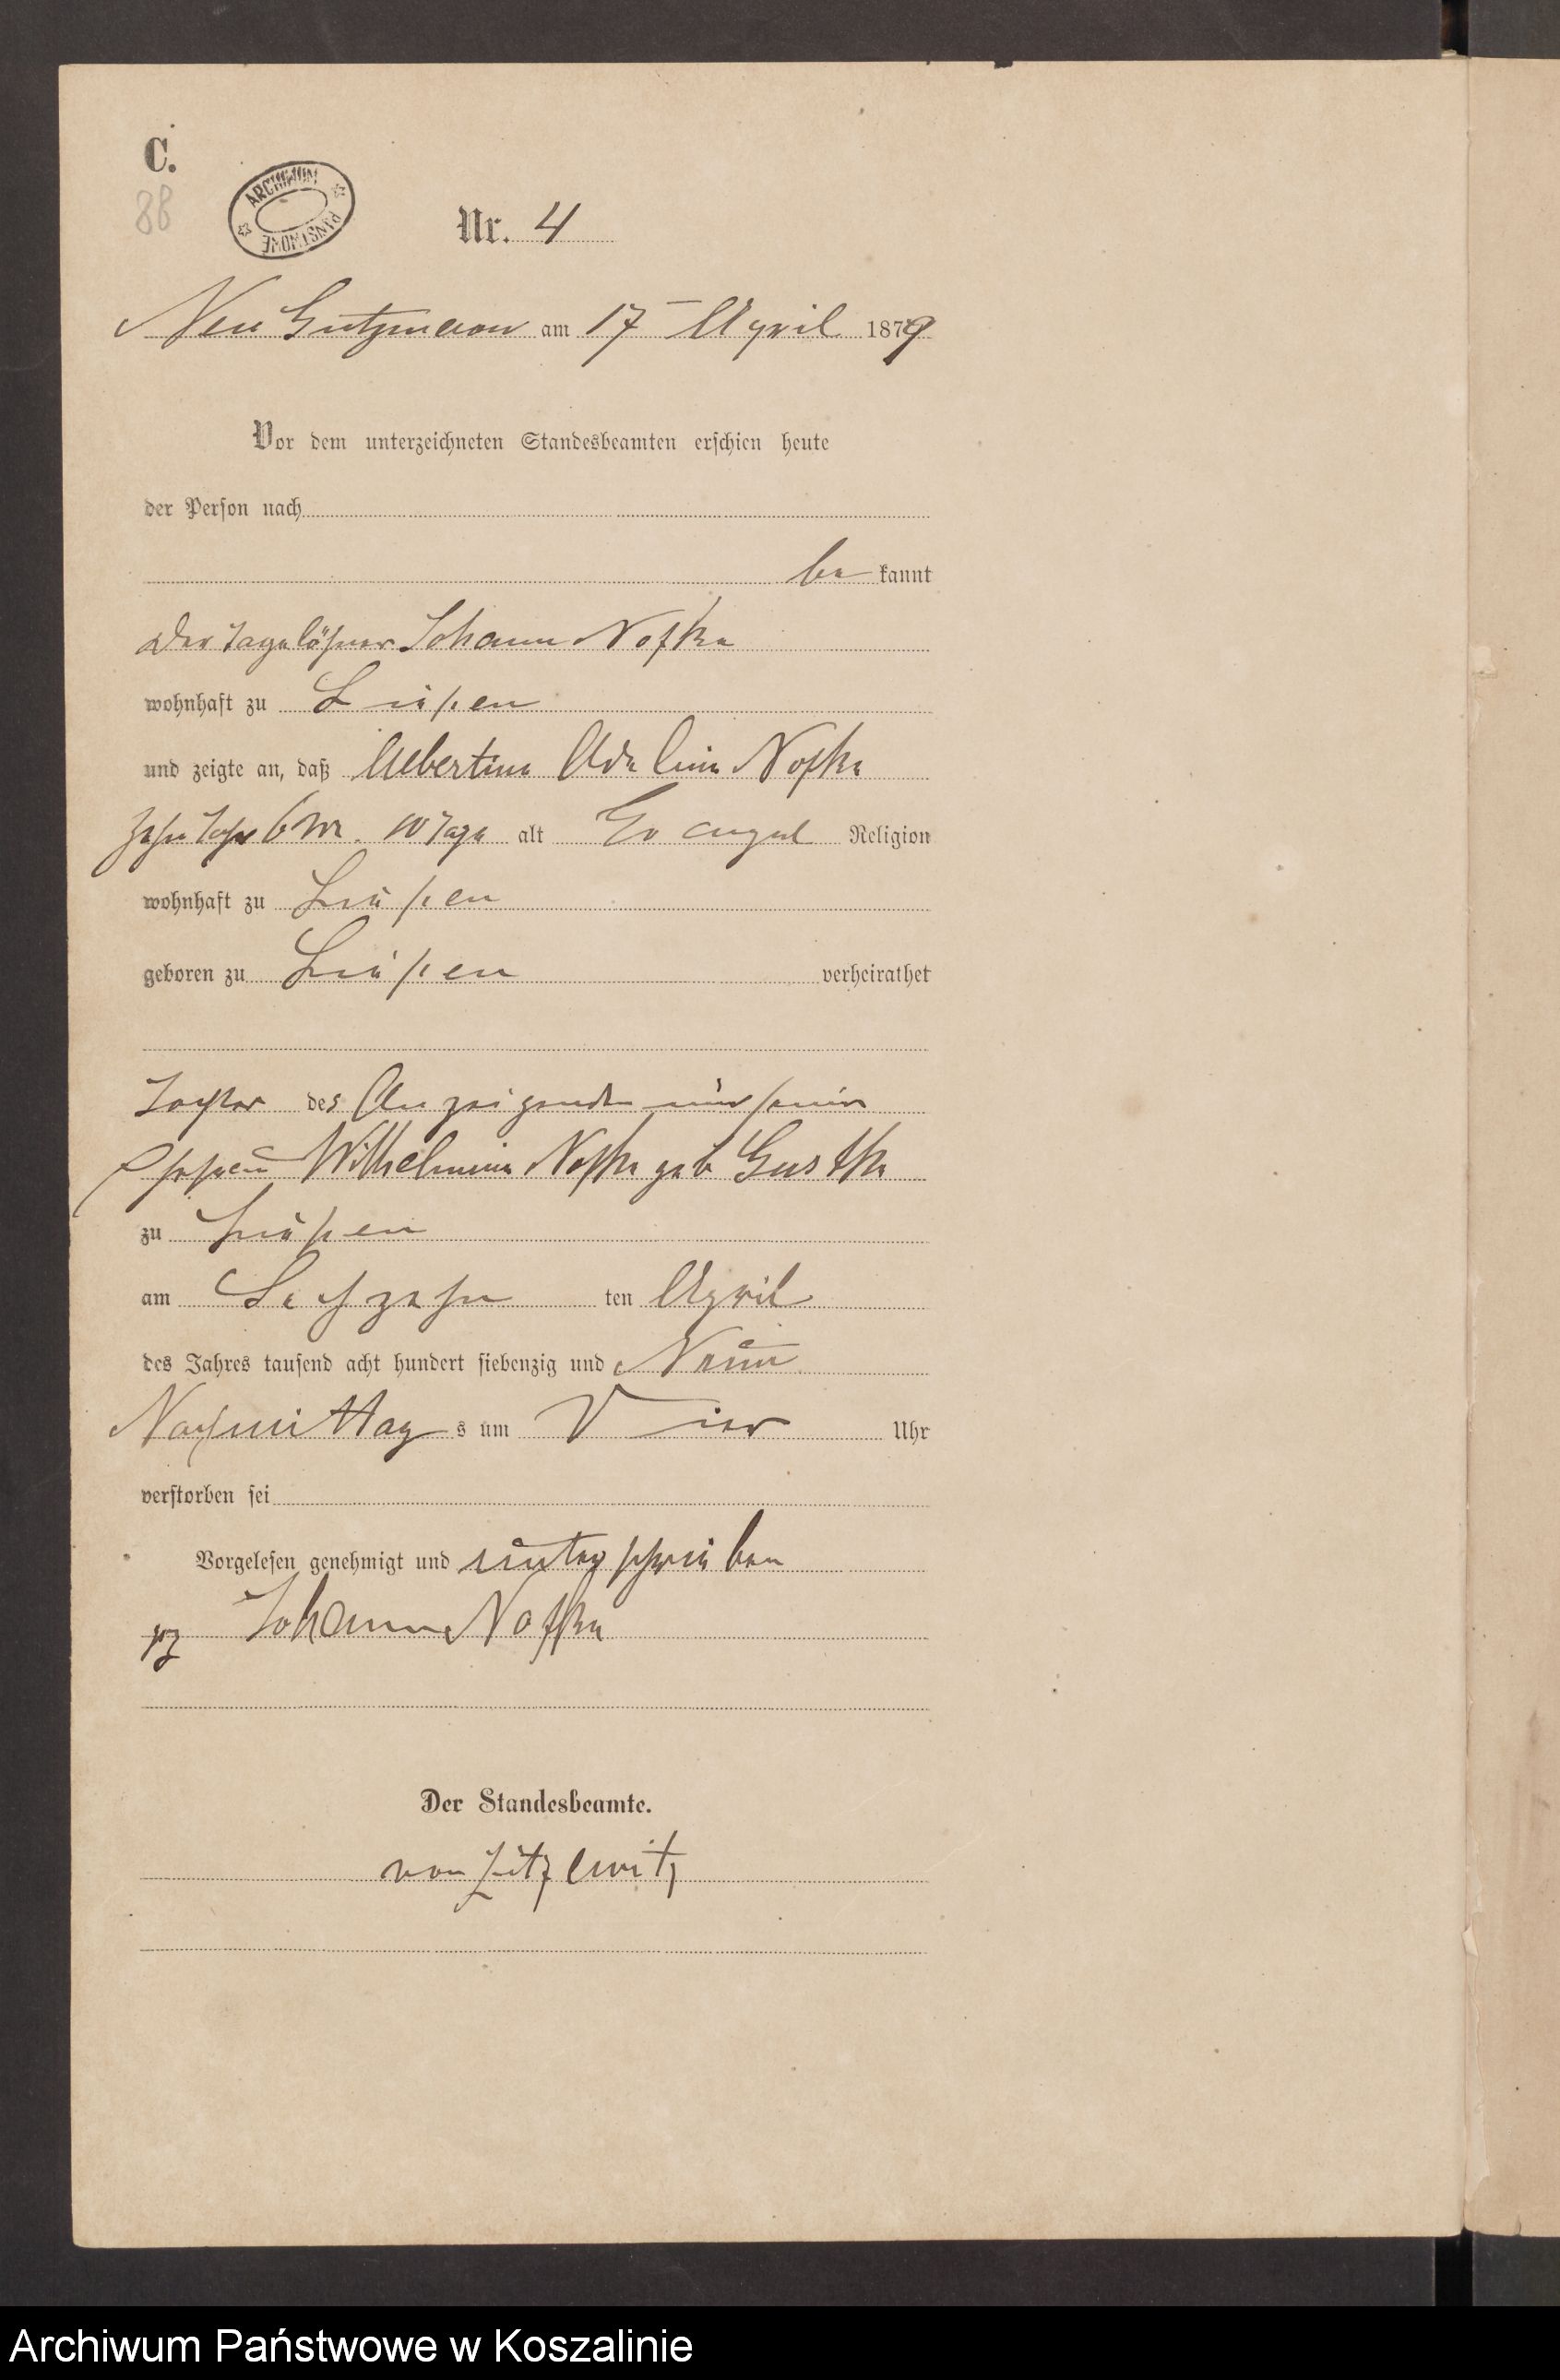 C.
88
ARCHIWUM PAŃSTWOWE
Nr. 4
Neu Gutzmerow am 17 April 1879
Vor dem unterzeichneten Standesbeamten erschien heute
der Person nach
be kannt
Der Tagelöhner Johann Noffke
wohnhaft zu
und zeigte an, daß Albertine Adeline Noffke
Zehn Jahr 6 M. 10 Tage alt Evangel Religion
wohnhaft zu
geboren zu verheirathet
Tochter des Anzeigenden und seiner
Ehefrau Wilhelmine Noffke geb
zu
am Sechzehn ten April
des Jahres tausend acht hundert siebenzig und Neun
Nachmittag s um Vier Uhr
verstorben sei
Vorgelesen genehmigt und unterschrieben
gz Johann Noffke
Der Standesbeamte.
von Zitzewitz
Archiwum Państwowe w Koszalinie